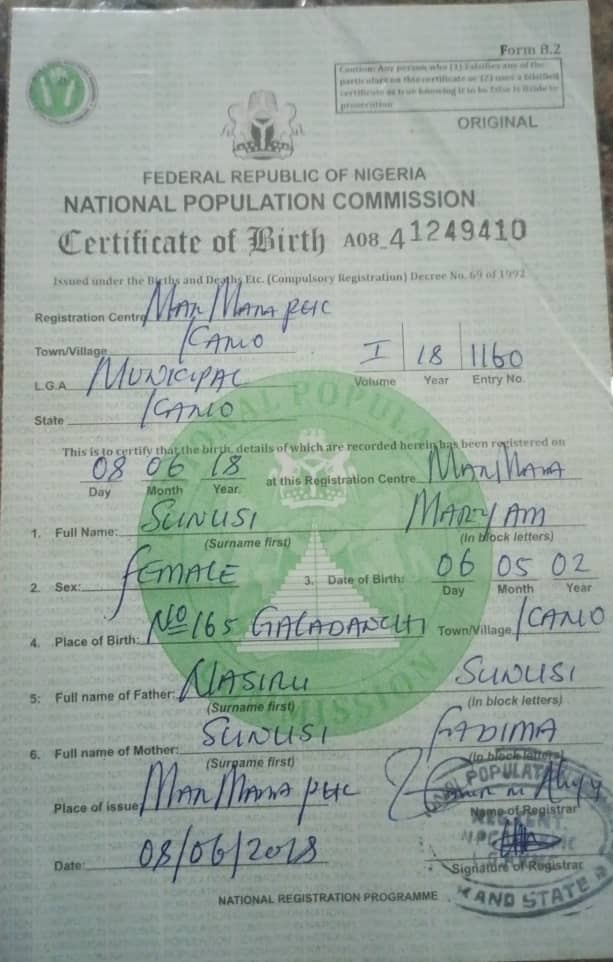 Form B.2
Caution: Any person who (1) falsifies any of the
particulars on this certificate or (2) uses a falsified
certificate as true knowing it to be false is liable to
prosecution
ORIGINAL
FEDERAL REPUBLIC OF NIGERIA
NATIONAL POPULATION COMMISSION
Certificate of Birth A08_41249410
Issued under the Births and Deaths Etc. (Compulsory Registration) Decree No. 69 of 1992
Registration Centre MAR MARA PHC
Town/Village KANO
L.G.A MUNICIPAL
I 18 1160
Volume Year Entry No.
State KANO
This is to certify that the birth, details of which are recorded herein has been registered on
08 06 18 at this Registration Centre MAR MARA
Day Month Year.
1. Full Name: SUNUSI MARYAM
(Surname first) (In block letters)
2. Sex: FEMALE 3. Date of Birth: 06 05 02
Day Month Year
4. Place of Birth: No 165 GALADANCHI Town/Village KANO
5: Full name of Father: NASIRU SUNUSI
(Surname first) (In block letters)
6. Full name of Mother: SUNUSI FADIMA
(Surname first) (In block letters)
Place of issue MAR MARA PHC
Name of Registrar
Date: 08/06/2018
Signature of Registrar
NATIONAL REGISTRATION PROGRAMME